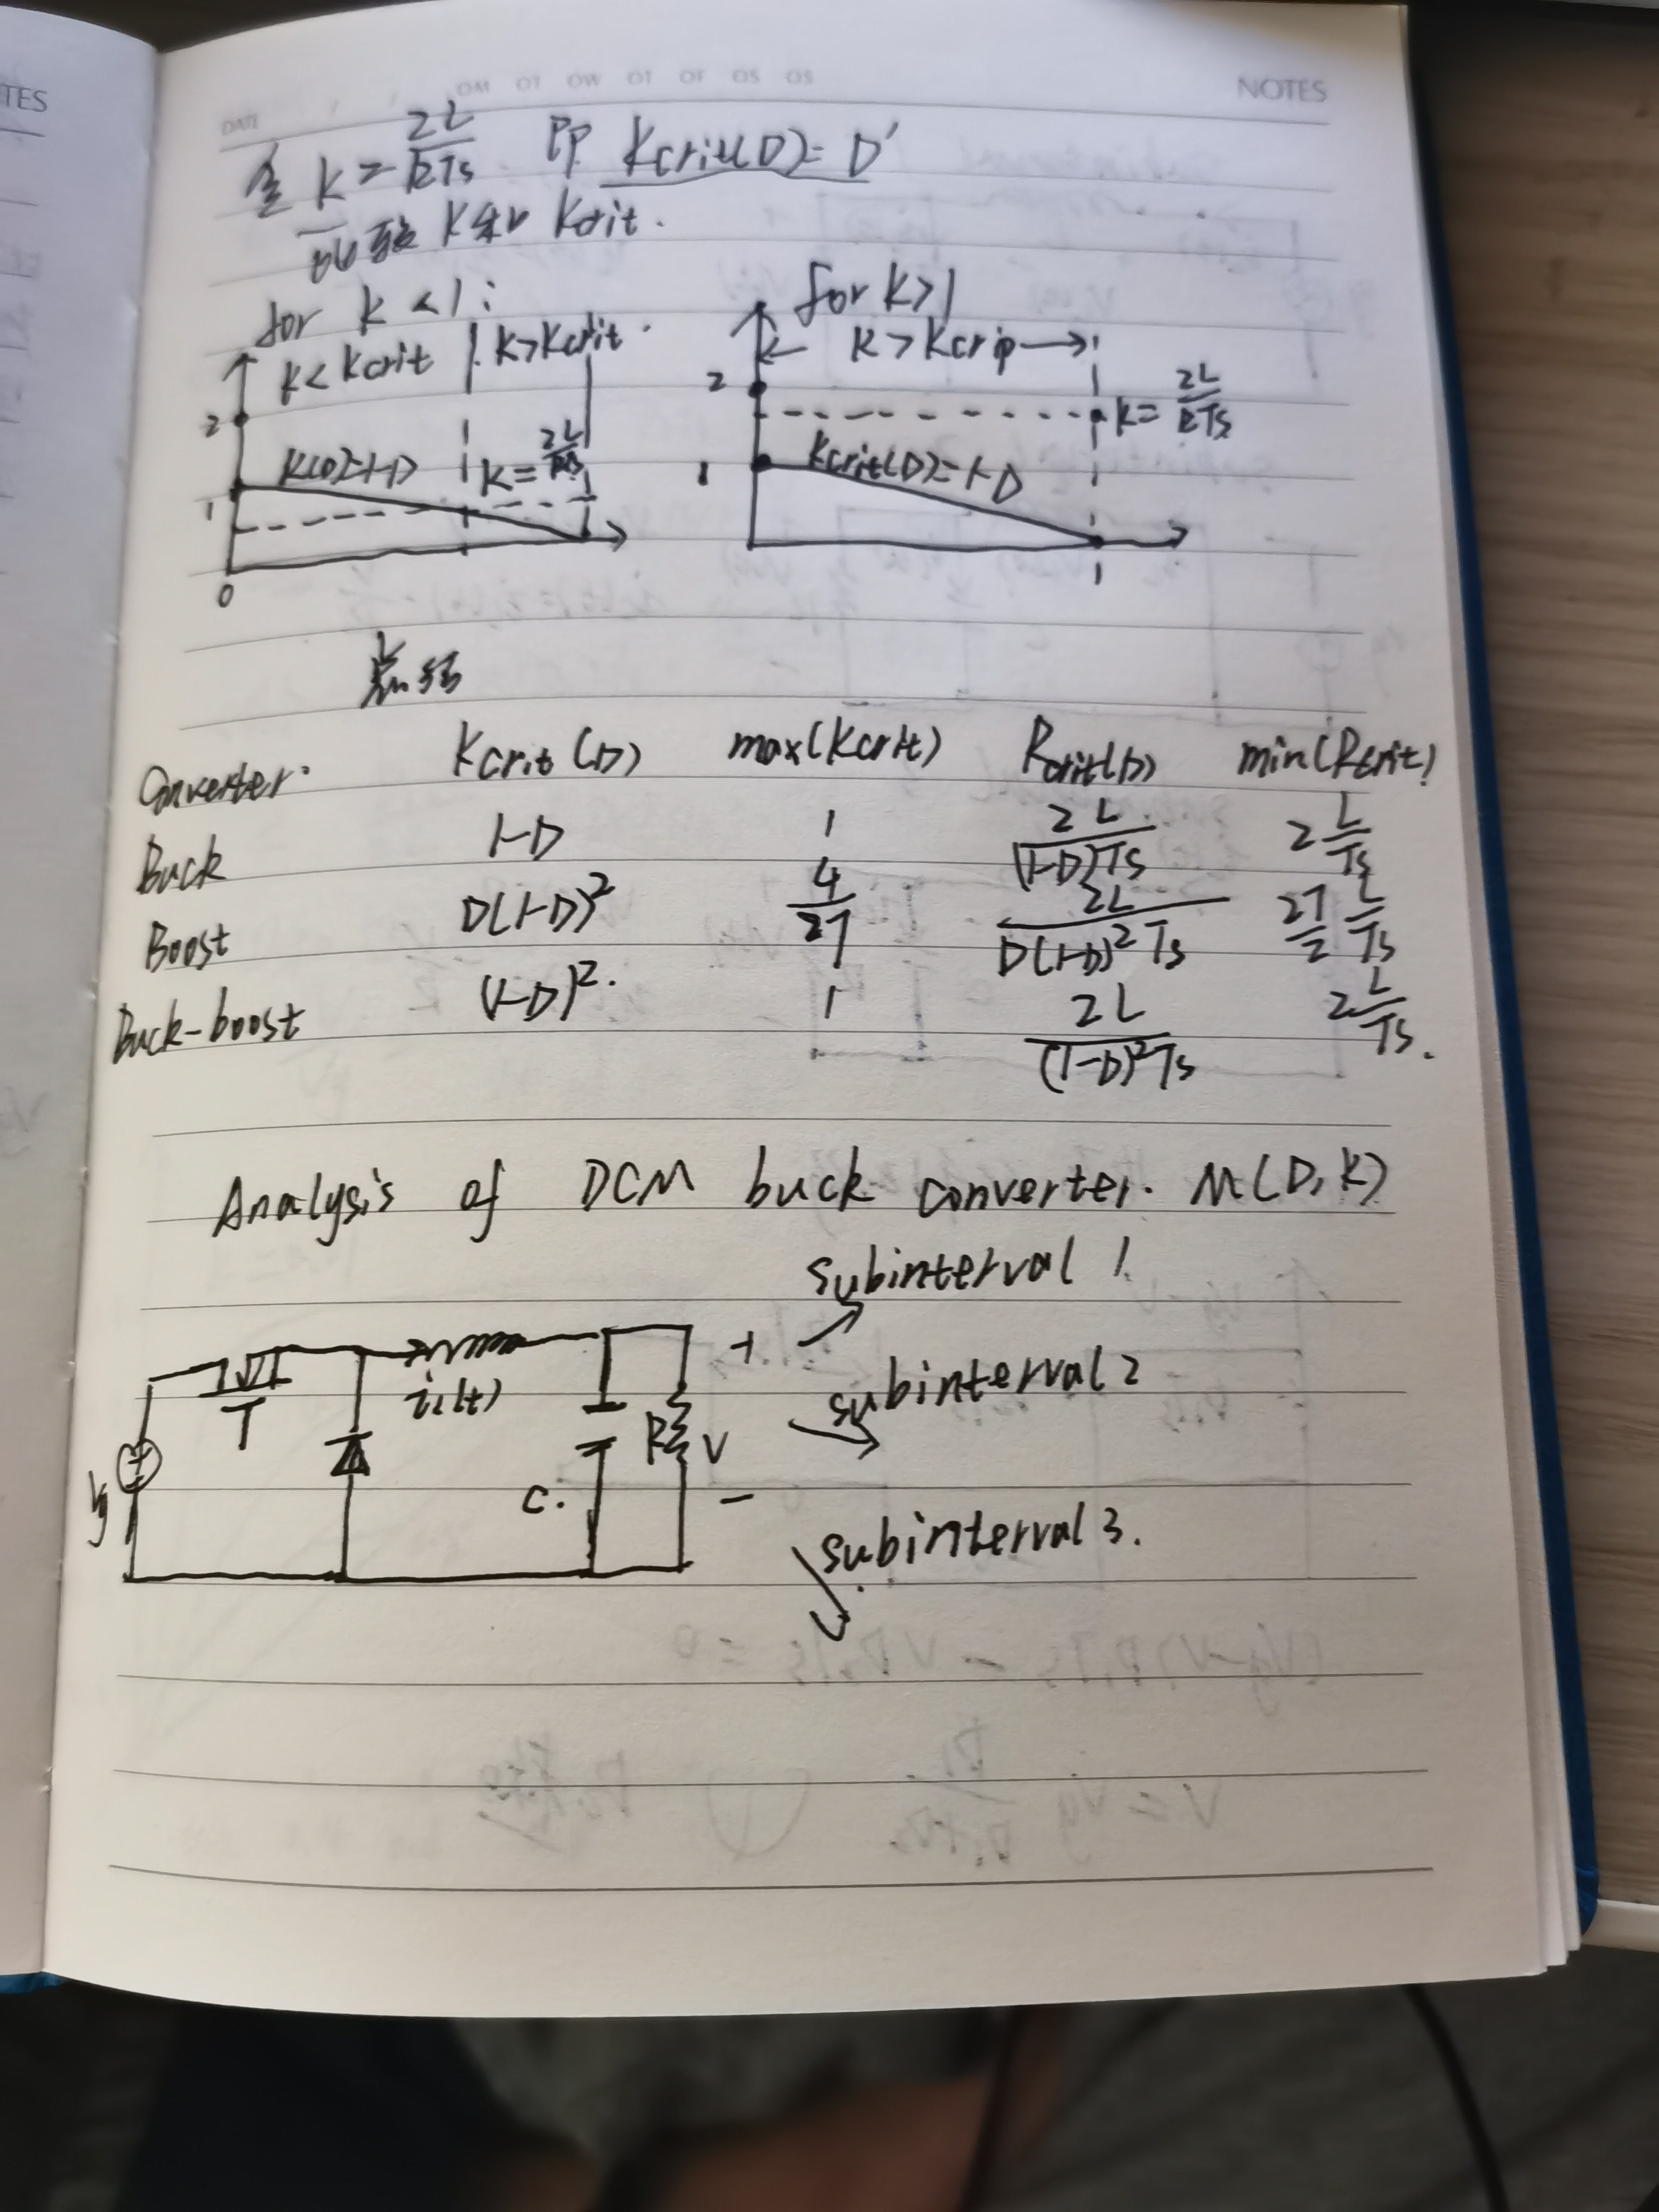 TES
DATE OM OT OW OT OF OS OS NOTES
令 K = 2L/RTs 即 Kcrit(D)= D'
比较 K和 Kcrit.
for K < 1:
K< Kcrit K>Kcrit.
2
K(D)=1-D K= 2L/RTs
1
0
for K>1
K > Kcrip
2
K= 2L/RTs
1 Kcrit(D)=1-D
1
总结
Converter. Kcrit (D) max(Kcrit) Rcrit(D) min(Rcrit)
Buck 1-D 1 2L/(1-D)Ts 2 L/Ts
Boost D(1-D)² 4/27 2L/D(1-D)²Ts 27/2 L/Ts
Buck-boost (1-D)². 1 2L/(1-D)²Ts 2 L/Ts.
Analysis of DCM buck converter. M(D,K)
subinterval 1.
+
T iL(t)
subinterval 2
Vg + R V
C. -
subinterval 3.